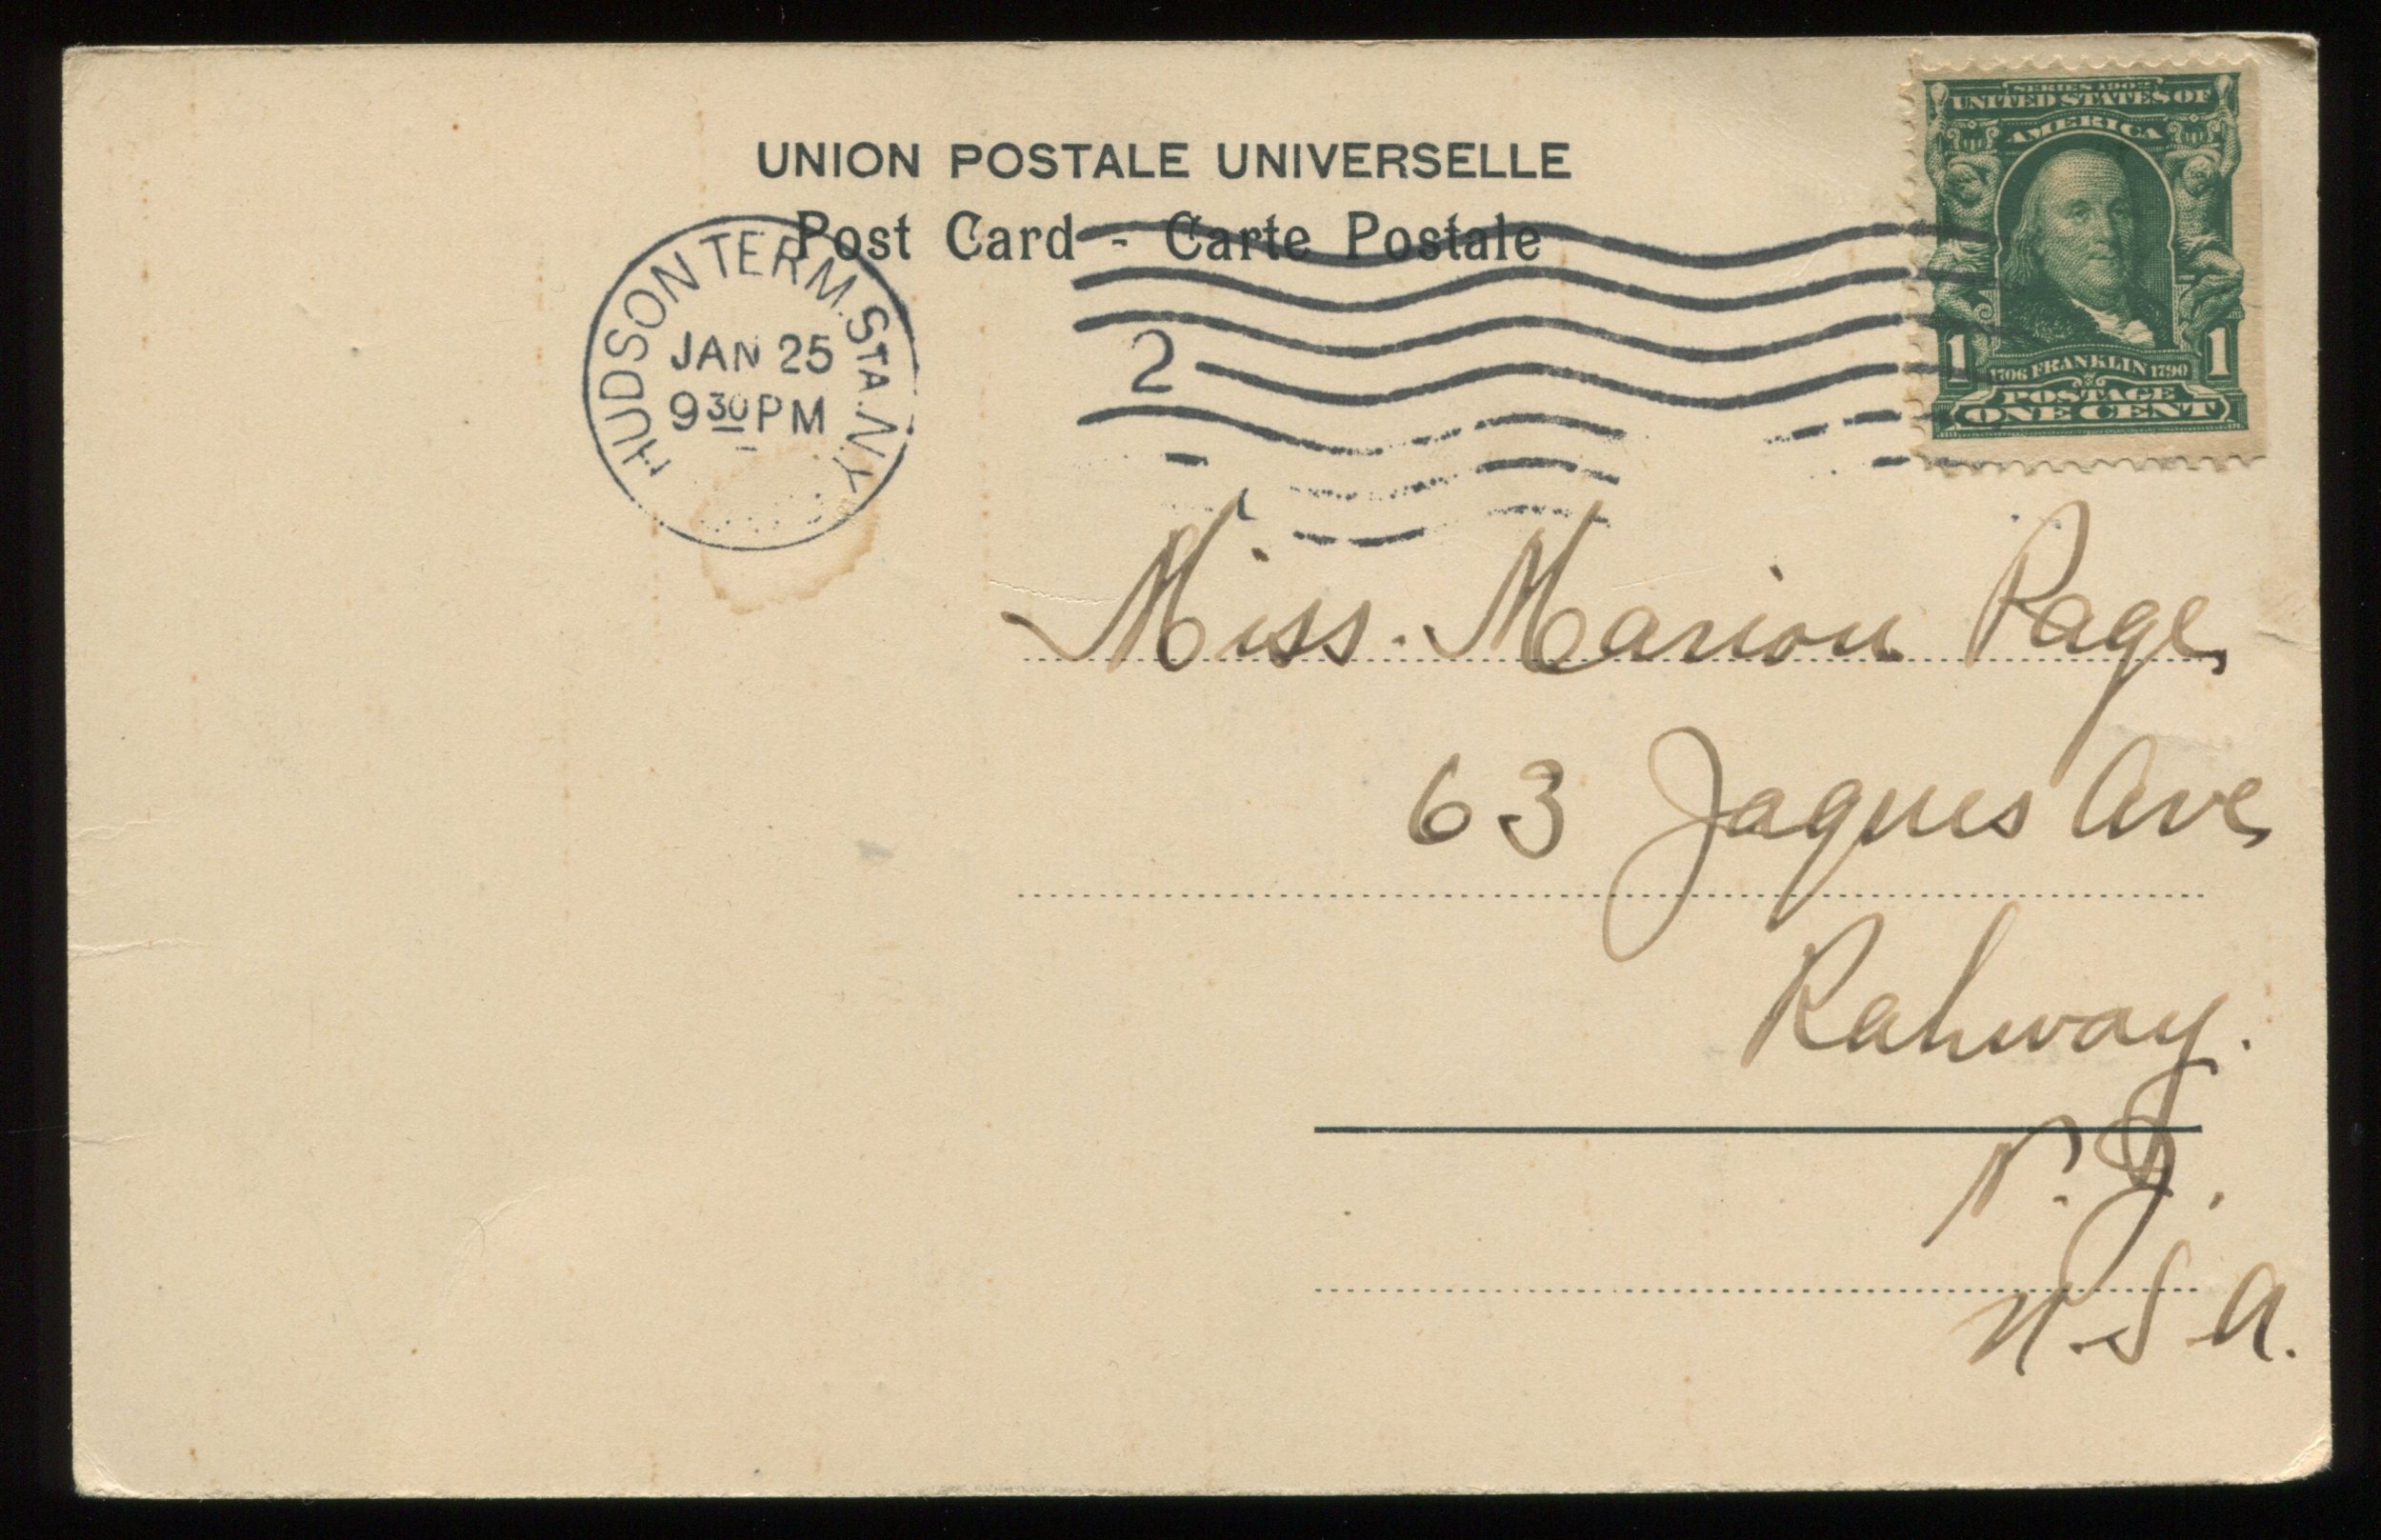 UNION POSTALE UNIVERSELLE
Post Card - Carte Postale
HUDSON TERM. STA. N.Y.
JAN 25
9 30 PM
2
SERIES 1902
UNITED STATES OF
AMERICA
1706 FRANKLIN 1790
1 1
POSTAGE
ONE CENT
Miss. Marion Page,
63 Jaques Ave,
Rahway.
N.J.
U.S.A.